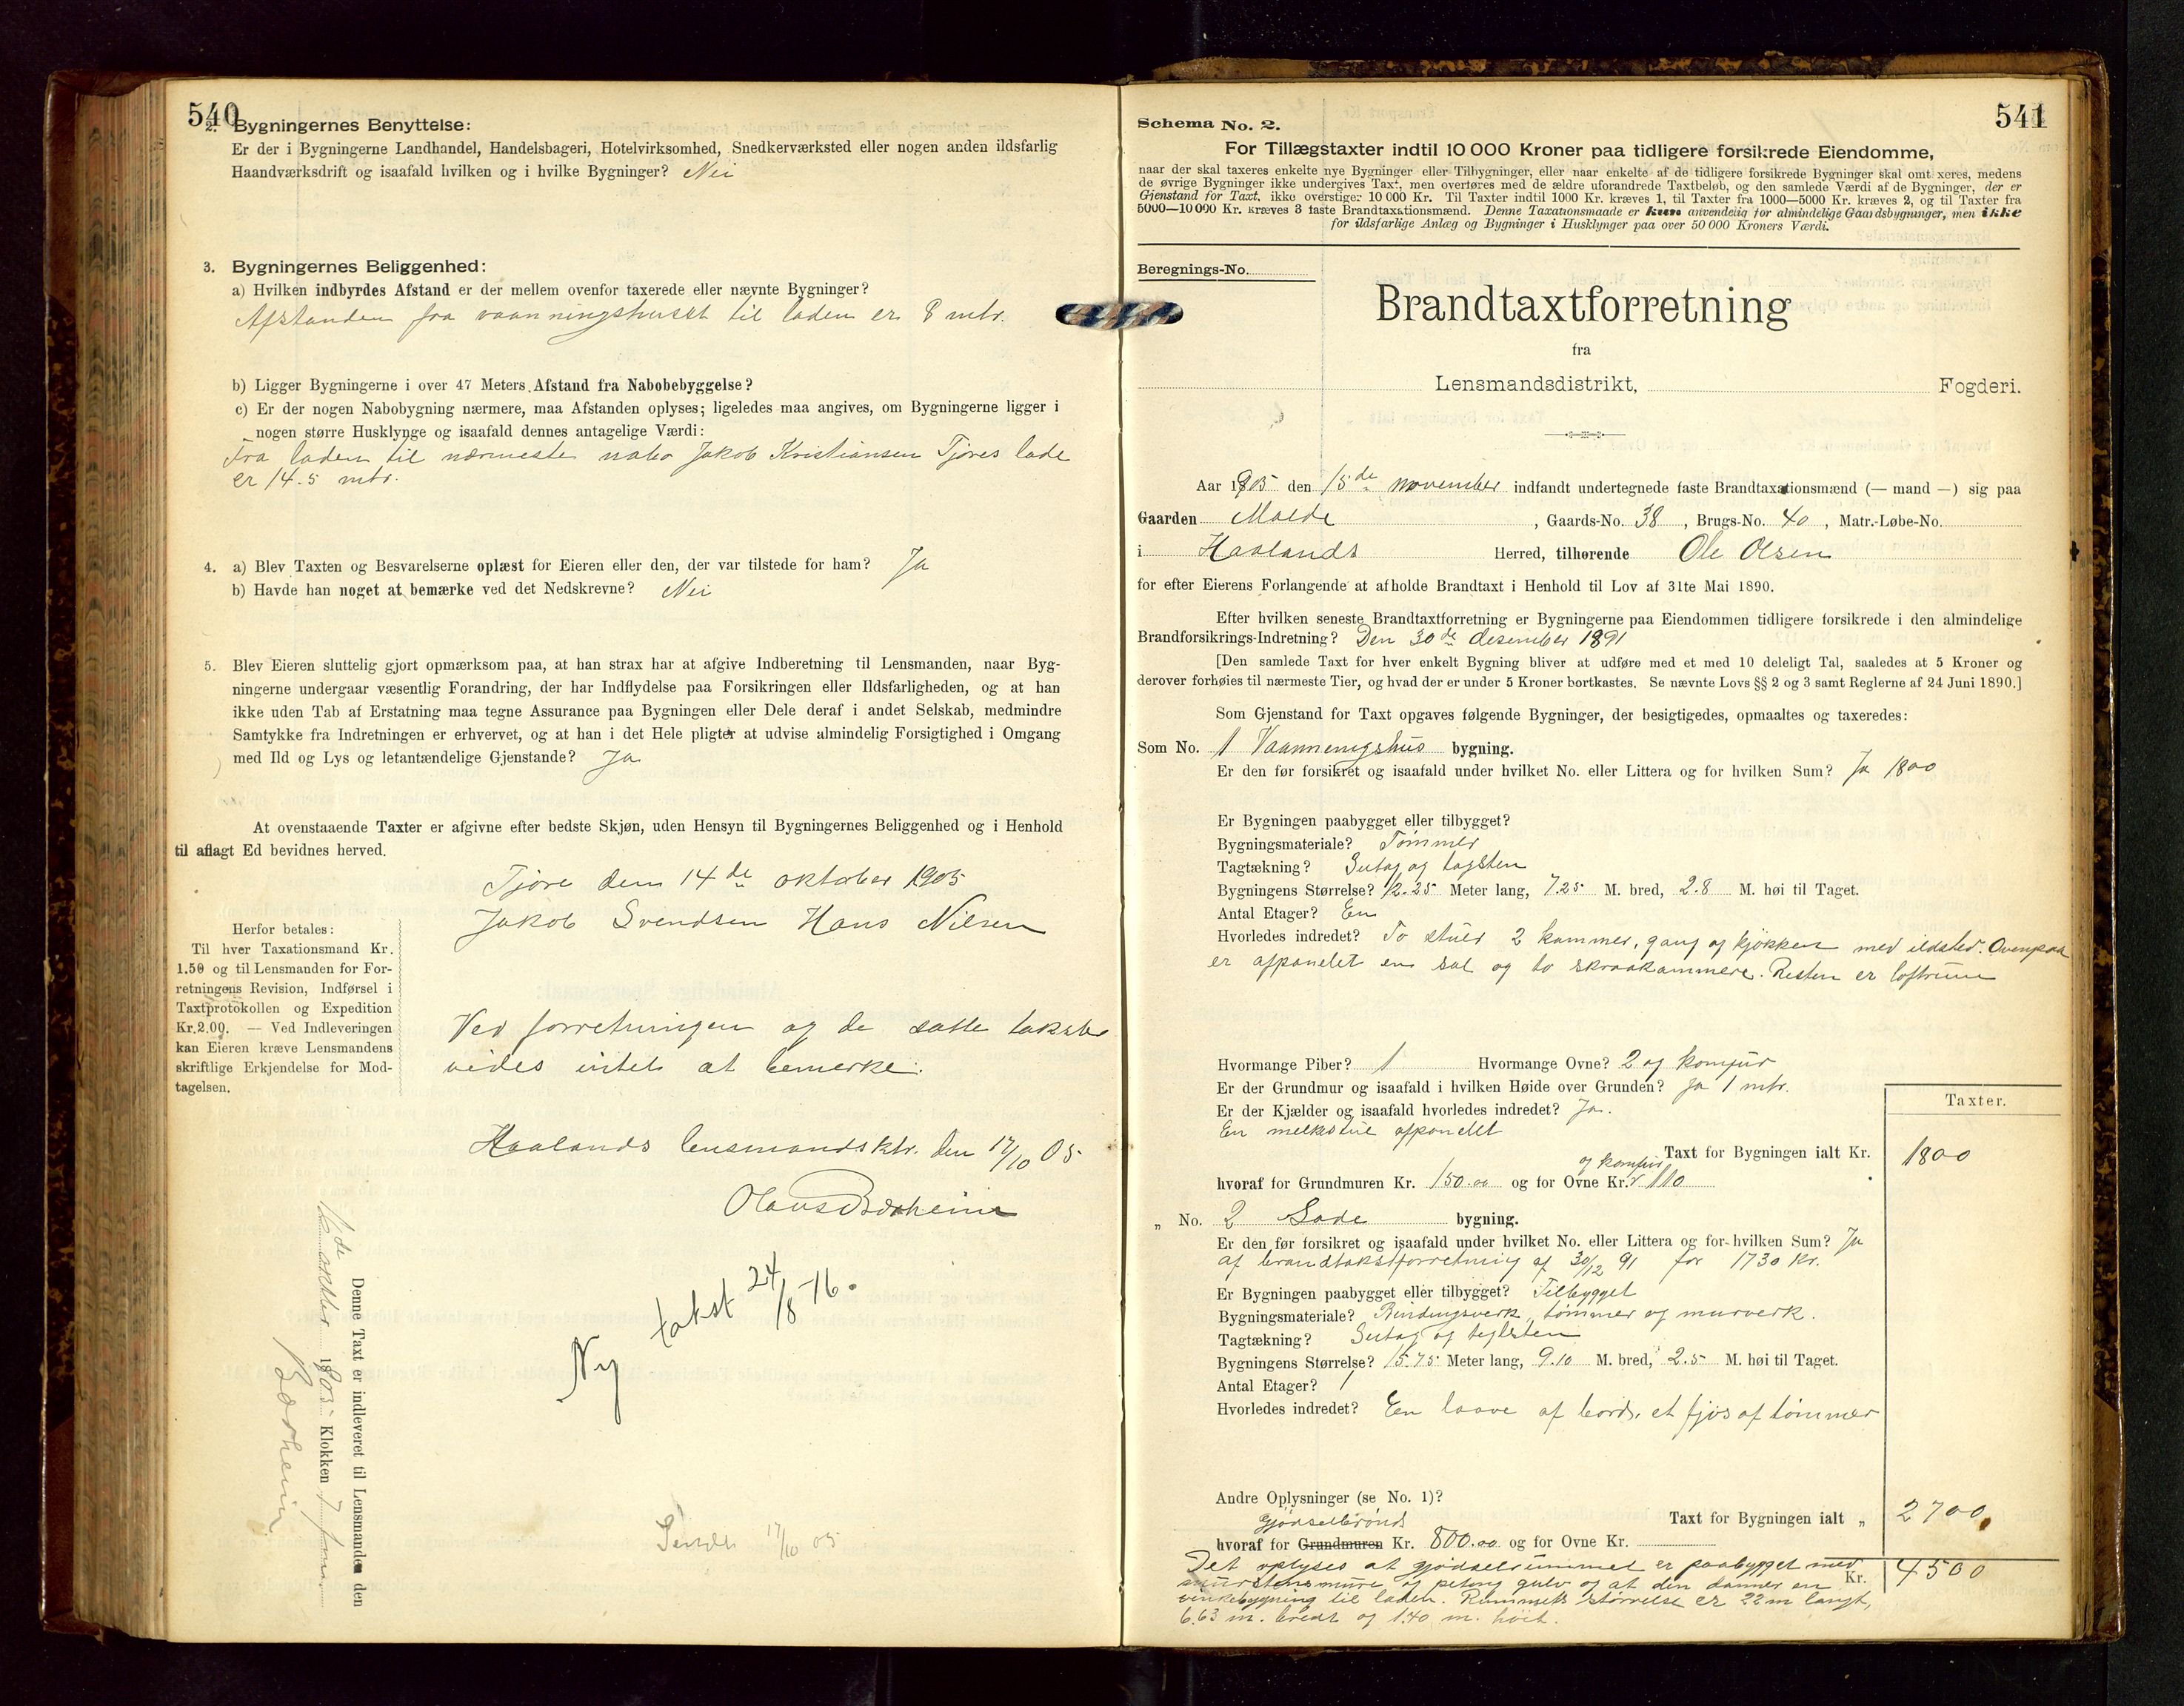 540
2. Bygningernes Benyttelse:
Er der i Bygningerne Landhandel, Handelsbageri, Hotelvirksomhed, Snedkerværksted eller nogen anden ildsfarlig
Haandværksdrift og isaafald hvilken og i hvilke Bygninger? Nei
3. Bygningernes Beliggenhed:
a) Hvilken indbyrdes Afstand er der mellem ovenfor taxerede eller nævnte Bygninger?
Afstanden fra vaanningshuset til laden er 8 mtr.
b) Ligger Bygningerne i over 47 Meters Afstand fra Nabobebyggelse?
c) Er der nogen Nabobygning nærmere, maa Afstanden oplyses; ligeledes maa angives, om Bygningerne ligger i
nogen større Husklynge og isaafald dennes antagelige Værdi:
Fra laden til nærmeste nabo Jakob Kristiansen Tjores lade
er 14.5 mtr.
4. a) Blev Taxten og Besvarelserne oplæst for Eieren eller den, der var tilstede for ham? Ja
b) Havde han noget at bemærke ved det Nedskrevne? Nei
5. Blev Eieren sluttelig gjort opmærksom paa, at han strax har at afgive Indberetning til Lensmanden, naar Byg-
ningerne undergaar væsentlig Forandring, der har Indflydelse paa Forsikringen eller Ildsfarligheden, og at han
ikke uden Tab af Erstatning maa tegne Assurance paa Bygningen eller Dele deraf i andet Selskab, medmindre
Samtykke fra Indretningen er erhvervet, og at han i det Hele pligter at udvise almindelig Forsigtighed i Omgang
med Ild og Lys og letantændelige Gjenstande? Ja
At ovenstaaende Taxter er afgivne efter bedste Skjøn, uden Hensyn til Bygningernes Beliggenhed og i Henhold
til aflagt Ed bevidnes herved.
Tjore den 14de oktober 1905
Jakob Svendsen Hans Nilsen
Herfor betales:
Til hver Taxationsmand Kr.
1.50 og til Lensmanden for For-
retningens Revision, Indførsel i
Taxtprotokollen og Expedition
Kr. 2.00. — Ved Indleveringen
kan Eieren kræve Lensmandens
skriftlige Erkjendelse for Mod-
tagelsen.
Ved forretningen og de satte takster
vides intet at bemerke.
Haalands lensmandsktr. den 17/10 05
Ny takst 24/8 -16.
17/10 05
Denne Taxt er indleveret til Lensmanden den
1905 Klokken 7 fm.
541
Schema No. 2.
For Tillægstaxter indtil 10 000 Kroner paa tidligere forsikrede Eiendomme,
naar der skal taxeres enkelte nye Bygninger eller Tilbygninger, eller naar enkelte af de tidligere forsikrede Bygninger skal omtaxeres, medens
de øvrige Bygninger ikke undergives Taxt, men overføres med de ældre uforandrede Taxtbeløb, og den samlede Værdi af de Bygninger, der er
Gjenstand for Taxt, ikke overstiger 10 000 Kr. Til Taxter indtil 1000 Kr. kræves 1, til Taxter fra 1000—5000 Kr. kræves 2, og til Taxter fra
5000—10 000 Kr. kræves 3 faste Brandtaxationsmænd. Denne Taxationsmaade er kun anvendelig for almindelige Gaardsbygninger, men ikke
for ildsfarlige Anlæg og Bygninger i Husklynger paa over 50 000 Kroners Værdi.
Beregnings-No.
Brandtaxtforretning
fra
Lensmandsdistrikt, Fogderi.
Aar 1905 den 15de november indfandt undertegnede faste Brandtaxationsmænd (— mand —) sig paa
Gaarden Molde, Gaards-No. 38, Brugs-No. 40, Matr.-Løbe-No.
i Haalands Herred, tilhørende Ole Olsen
for efter Eierens Forlangende at afholde Brandtaxt i Henhold til Lov af 31te Mai 1890.
Efter hvilken seneste Brandtaxtforretning er Bygningerne paa Eiendommen tidligere forsikrede i den almindelige
Brandforsikrings-Indretning? Den 30de desember 1891
[Den samlede Taxt for hver enkelt Bygning bliver at udføre med et med 10 deleligt Tal, saaledes at 5 Kroner og
derover forhøies til nærmeste Tier, og hvad der er under 5 Kroner bortkastes. Se nævnte Lovs §§ 2 og 3 samt Reglerne af 24 Juni 1890.]
Som Gjenstand for Taxt opgaves følgende Bygninger, der besigtigedes, opmaaltes og taxeredes:
Som No. 1 Vaanningshus bygning.
Er den før forsikret og isaafald under hvilket No. eller Littera og for hvilken Sum? Ja 1800
Er Bygningen paabygget eller tilbygget?
Bygningsmateriale? Tømmer
Tagtækning? Sutag og tagsten
Bygningens Størrelse? 12.25 Meter lang, 7.25 M. bred, 2.8 M. høi til Taget.
Antal Etager? En
Hvorledes indredet? To stuer 2 kammer, gang og kjøkken med ildsted. Ovenpaa
er afpanelet en sal og to skraakammere. Resten er loftrum
Hvormange Piber? 1 Hvormange Ovne? 2 og komfur
Er der Grundmur og isaafald i hvilken Høide over Grunden? Ja 1 mtr.
Er der Kjælder og isaafald hvorledes indredet? Ja.
En melkestue afpanelet
Taxter.
Taxt for Bygningen ialt Kr. 1800
hvoraf for Grundmuren Kr. 150.00 og for Ovne og komfur Kr. 110
„ No. 2 Lade bygning.
Er den før forsikret og isaafald under hvilket No. eller Littera og for hvilken Sum? Ja
af brandtakstforretning af 30/12 91 for 1730 kr.
Er Bygningen paabygget eller tilbygget? Tilbygget
Bygningsmateriale? Bindingsverk, tømmer og murverk.
Tagtækning? Sutag og teglsten
Bygningens Størrelse? 15.75 Meter lang, 9.10 M. bred, 2.5 M. høi til Taget.
Antal Etager? 1
Hvorledes indredet? Een laave af bord, et fjøs af tømmer
Andre Oplysninger (se No. 1)?
Taxt for Bygningen ialt „ 2700
Gjødselbrønd
hvoraf for Grundmuren Kr. 800.00 og for Ovne Kr.
Kr. 4500
Det oplyses at gjødselrummet er paabygget med
murstensmure og petong gulv og at den danner en
vinkebygning til laden. Rummets størrelse er 22 m langt,
6.63 m. bredt og 1.40 m. høit.